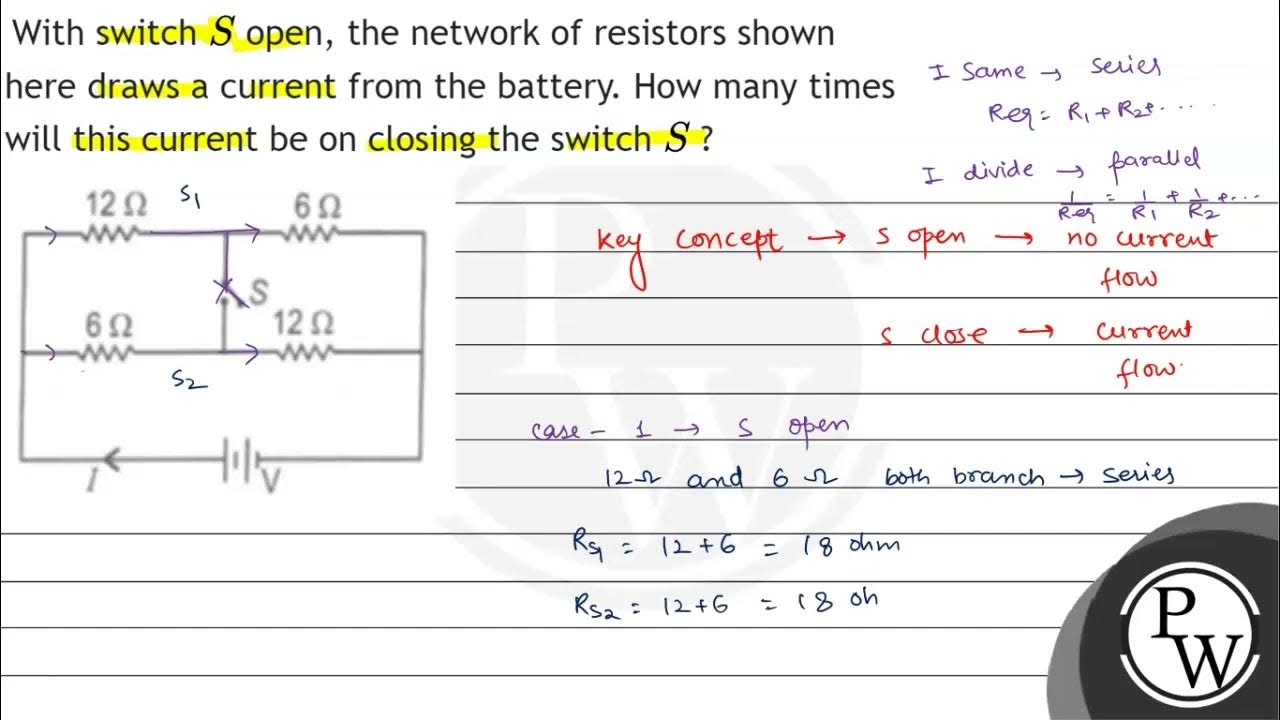 With switch S open, the network of resistors shown
here draws a current from the battery. How many times
will this current be on closing the switch S ?
I same → series
Req = R1 + R2+ .....
I divide → parallel
1/Req = 1/R1 + 1/R2 + ...
12 Ω S1 6 Ω
S
6 Ω 12 Ω
S2
I V
key concept → S open → no current
flow
S close → current
flow.
case - 1 → S open
12Ω and 6 Ω both branch → series
RS1 = 12+6 = 18 ohm
RS2 = 12+6 = 18 oh
P
W
P
W